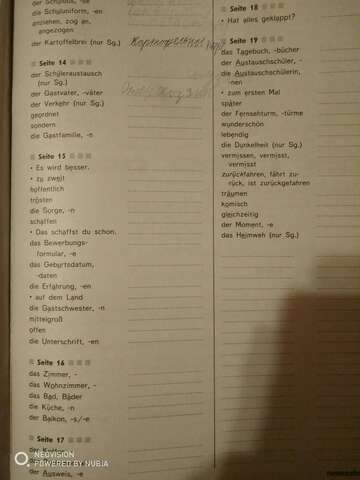 die Schuluniform, -en
anziehen, zog an,
angezogen
der Kartoffelbrei (nur Sg.)
Seite 14
der Schüleraustausch
(nur Sg.)
der Gastvater, -väter
der Verkehr (nur Sg.)
geordnet
sondern
die Gastfamilie, -n
Seite 15
• Es wird besser.
• zu zweit
hoffentlich
trösten
die Sorge, -n
schaffen
• Das schaffst du schon.
das Bewerbungs-
formular, -e
das Geburtsdatum,
-daten
die Erfahrung, -en
• auf dem Land
die Gastschwester, -n
mittelgroß
offen
die Unterschrift, -en
Seite 16
das Zimmer, -
das Wohnzimmer, -
das Bad, Bäder
die Küche, -n
der Balkon, -s/-e
Seite 17
der Ausweis, -e
Seite 18
• Hat alles geklappt?
Seite 19
das Tagebuch, -bücher
der Austauschschüler, -
die Austauschschülerin,
-nen
• zum ersten Mal
später
der Fernsehturm, -türme
wunderschön
lebendig
die Dunkelheit (nur Sg.)
vermissen, vermisst,
vermisst
zurückfahren, fährt zu-
rück, ist zurückgefahren
träumen
komisch
gleichzeitig
der Moment, -e
das Heimweh (nur Sg.)
NEOVISION
POWERED BY NUBIA